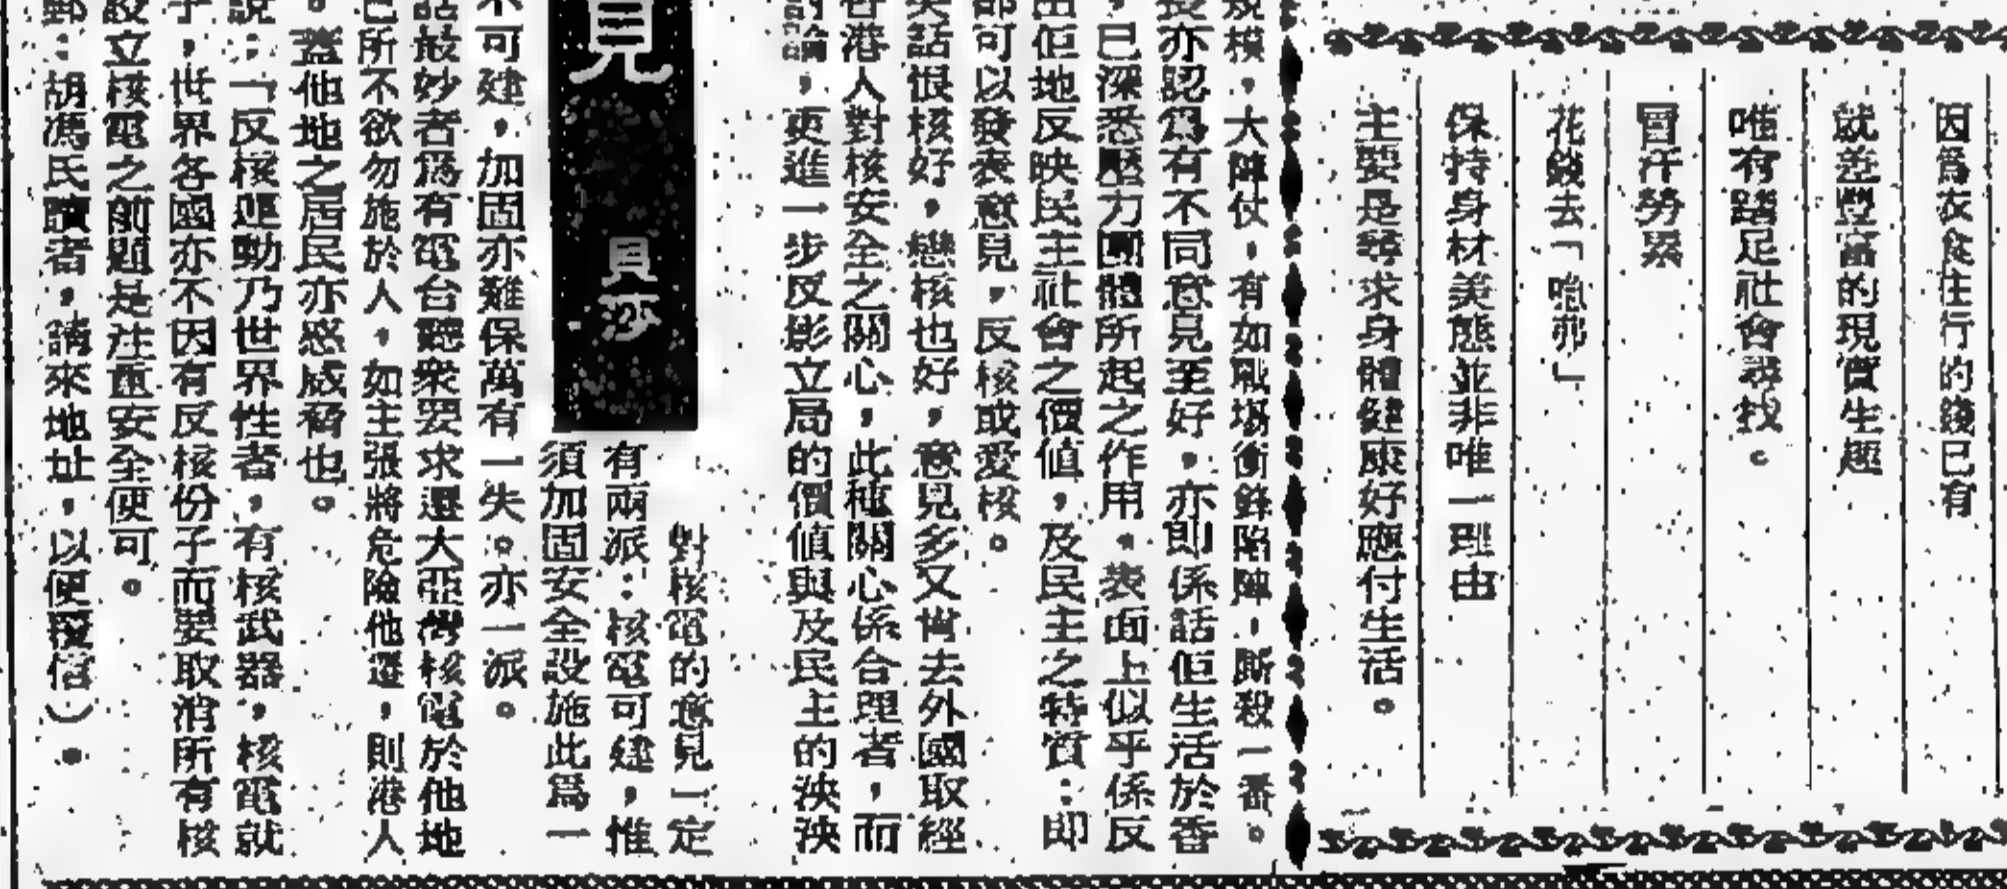 因為衣食住行的錢已有
就差豐富的現實生趣
唯有踏足社會尋找。
冒汗勞累
花錢去「咆弗」
保持身材美態並非唯一理由
主要是尋求身體健康好應付生活。
規模,大陣仗,有如戰場衝鋒陷陣,厮殺一番。
亦認為有不同意見至好,亦即係話佢生活於香
,已深悉壓力團體所起之作用。表面上似乎係反
出佢地反映民主社會之價值,及民主之特質:即
都可以發表意見,反核或愛核。
笑話恨核好,戀核也好,意見多又世去外國取經
香港人對核安全之關心,此種關心係合理者,而
討論,更進一步反影立局的價值與及民主的泱泱
見
貝莎
對核電的意見一定
有兩派:核電可建,惟
須加固安全設施此為一
不可建,加固亦難保萬有一失。亦一派。
話最妙者為有電台聽衆要求遷大亞灣核電於他地
己所不欲勿施於人,如主張將危險他遷,則港人
。蓋他地之居民亦惑威脅也。
說:「反核運動乃世界性者,有核武器,核電就
子,世界各國亦不因有反核份子而要取消所有核
設立核電之前題是注重安全便可。
郵:胡馮民讀者,請來地址,以便覆信)。